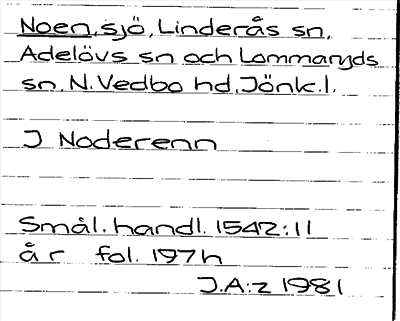 Noen, sjö, Linderås sn,
Adelövs sn och Lommaryds
sn, N. Vedbo hd, Jönk. l.
J Noderenn
Smål. handl. 1542:11
år fol. 197 h
J.A:z 1981